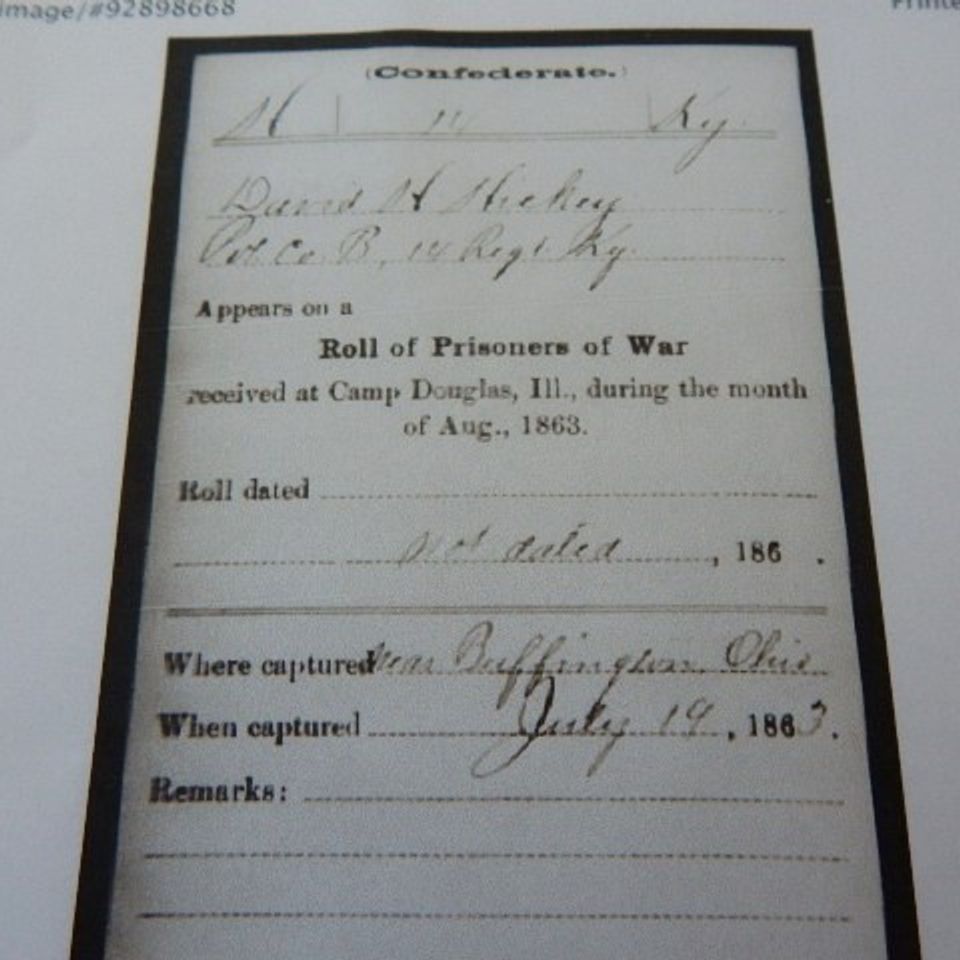 image/#92898668
Printe
(Confederate.)
H | 14 | Ky.
David H Hickey
Pvt Co B, 14 Regt Ky.
Appears on a
Roll of Prisoners of War
received at Camp Douglas, Ill., during the month
of Aug., 1863.
Roll dated
not dated, 186 .
Where captured Near Buffington, Ohio
When captured July 19, 1863.
Remarks: